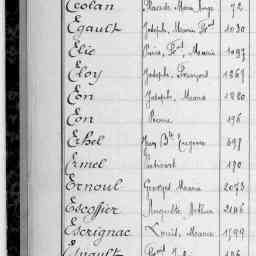 Ecolan Placide Marie Ange 72
Egault Joseph, Marie Fd 1030
Elie Pierre, Fd, Marie 1097
Eloy Joseph, François 1269
Eon Joseph, Marie 1280
Eon Pierre 196
Erhel Jean Bte Eugène 498
Ermel 170
Ernoul Georges Marie 2043
Escoffier Auguste Arthur 2146
Escrignac Louis, Marie 1799
Esnault